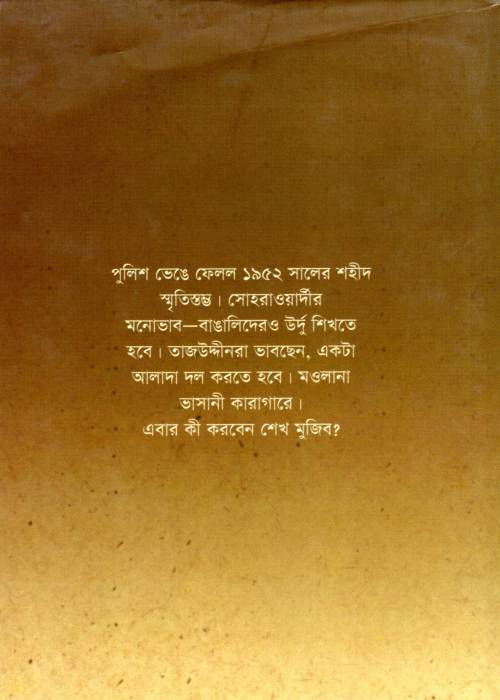 পুলিশ ভেঙে ফেলল ১৯৫২ সালের শহীদ
স্মৃতিস্তম্ভ। সোহরাওয়ার্দীর
মনোভাব—বাঙালিদেরও উর্দু শিখতে
হবে। তাজউদ্দীনরা ভাবছেন, একটা
আলাদা দল করতে হবে। মওলানা
ভাসানী কারাগারে।
এবার কী করবেন শেখ মুজিব?